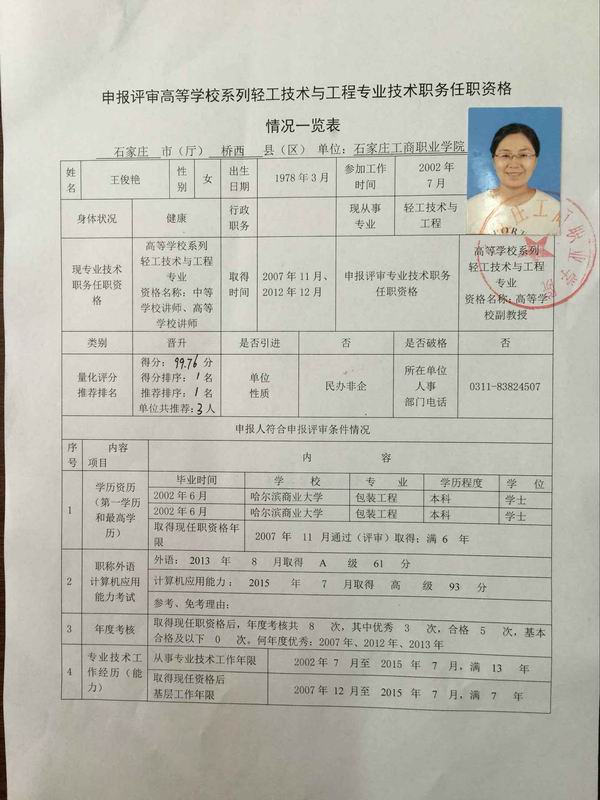 申报评审高等学校系列轻工技术与工程专业技术职务任职资格
情况一览表
石家庄 市（厅） 桥西 县（区） 单位：石家庄工商职业学院
姓名 王俊艳 性别 女 出生日期 1978年3月 参加工作时间 2002年7月
身体状况 健康 行政职务 现从事专业 轻工技术与工程
现专业技术职务任职资格 高等学校系列轻工技术与工程专业 资格名称：中等学校讲师、高等学校讲师 取得时间 2007年11月、2012年12月 申报评审专业技术职务任职资格 高等学校系列轻工技术与工程专业 资格名称：高等学校副教授
类别 晋升 是否引进 否 是否破格 否
量化评分推荐排名 得分：99.76分 得分排序：1名 推荐排序：1名 单位共推荐：3人 单位性质 民办非企 所在单位人事部门电话 0311-83824507
申报人符合申报评审条件情况
序号 内容 项目 内 容
1 学历资历（第一学历和最高学历） 毕业时间 学 校 专 业 学历程度 学 位
2002年6月 哈尔滨商业大学 包装工程 本科 学士
2002年6月 哈尔滨商业大学 包装工程 本科 学士
取得现任职资格年限 2007 年 11 月通过（评审）取得：满 6 年
2 职称外语计算机应用能力考试 外语：2013 年 8 月取得 A 级 61 分
计算机应用能力：2015 年 7 月取得 高 级 93 分
参考、免考理由：
3 年度考核 取得现任职资格后，年度考核共 8 次，其中优秀 3 次，合格 5 次，基本
合格及以下 0 次。何年度优秀：2007年、2012年、2013年
4 专业技术工作经历（能力） 从事专业技术工作年限 2002年 7 月至 2015 年 7 月，满 13 年
取得现任资格后基层工作年限 2007年 12 月至 2015 年 7 月，满 7 年